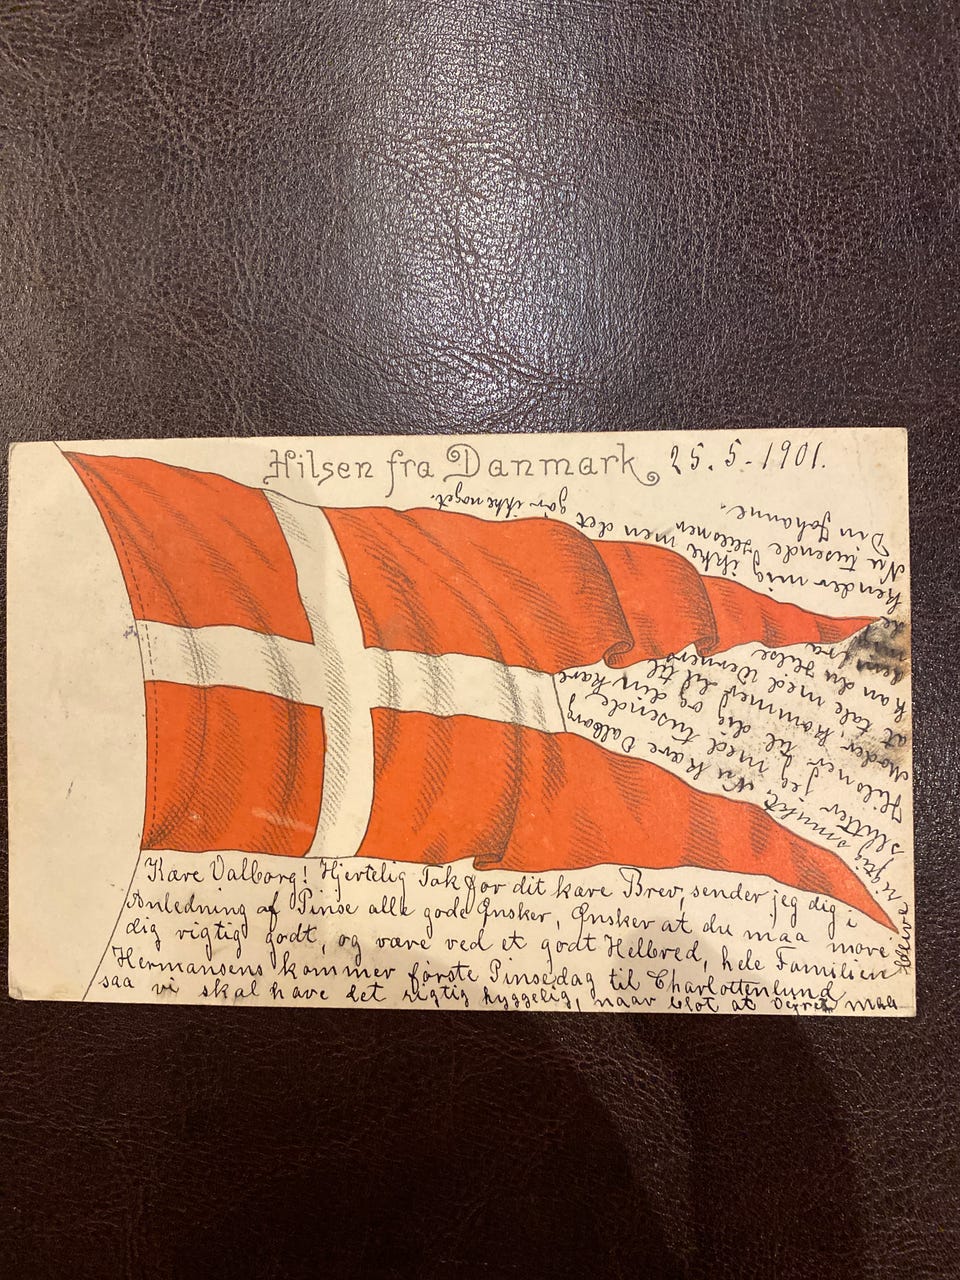 Hilsen fra Danmark
25. 5. 1901.
Kære Valborg! Hjertelig Tak for dit kære Brev, sender jeg dig i
Anledning af Pinse alle gode Ønsker, Ønsker at du maa more
dig rigtig godt, og være ved et godt Helbred, hele Familien
Hermansens kommer første Pinsedag til Charlottenlund
saa vi skal have det rigtig hyggelig, naar blot at Vejret maa
blive
rigtig smukt. Nu kære Valborg
slutter jeg med tusende
Hilsner til dig og din kære
Moder, kommer du til
at tale med Werners
kan du hilse
fra
kender mig ikke men det
gør ikke noget.
Nu tusende Hilsener
Din Johanne.